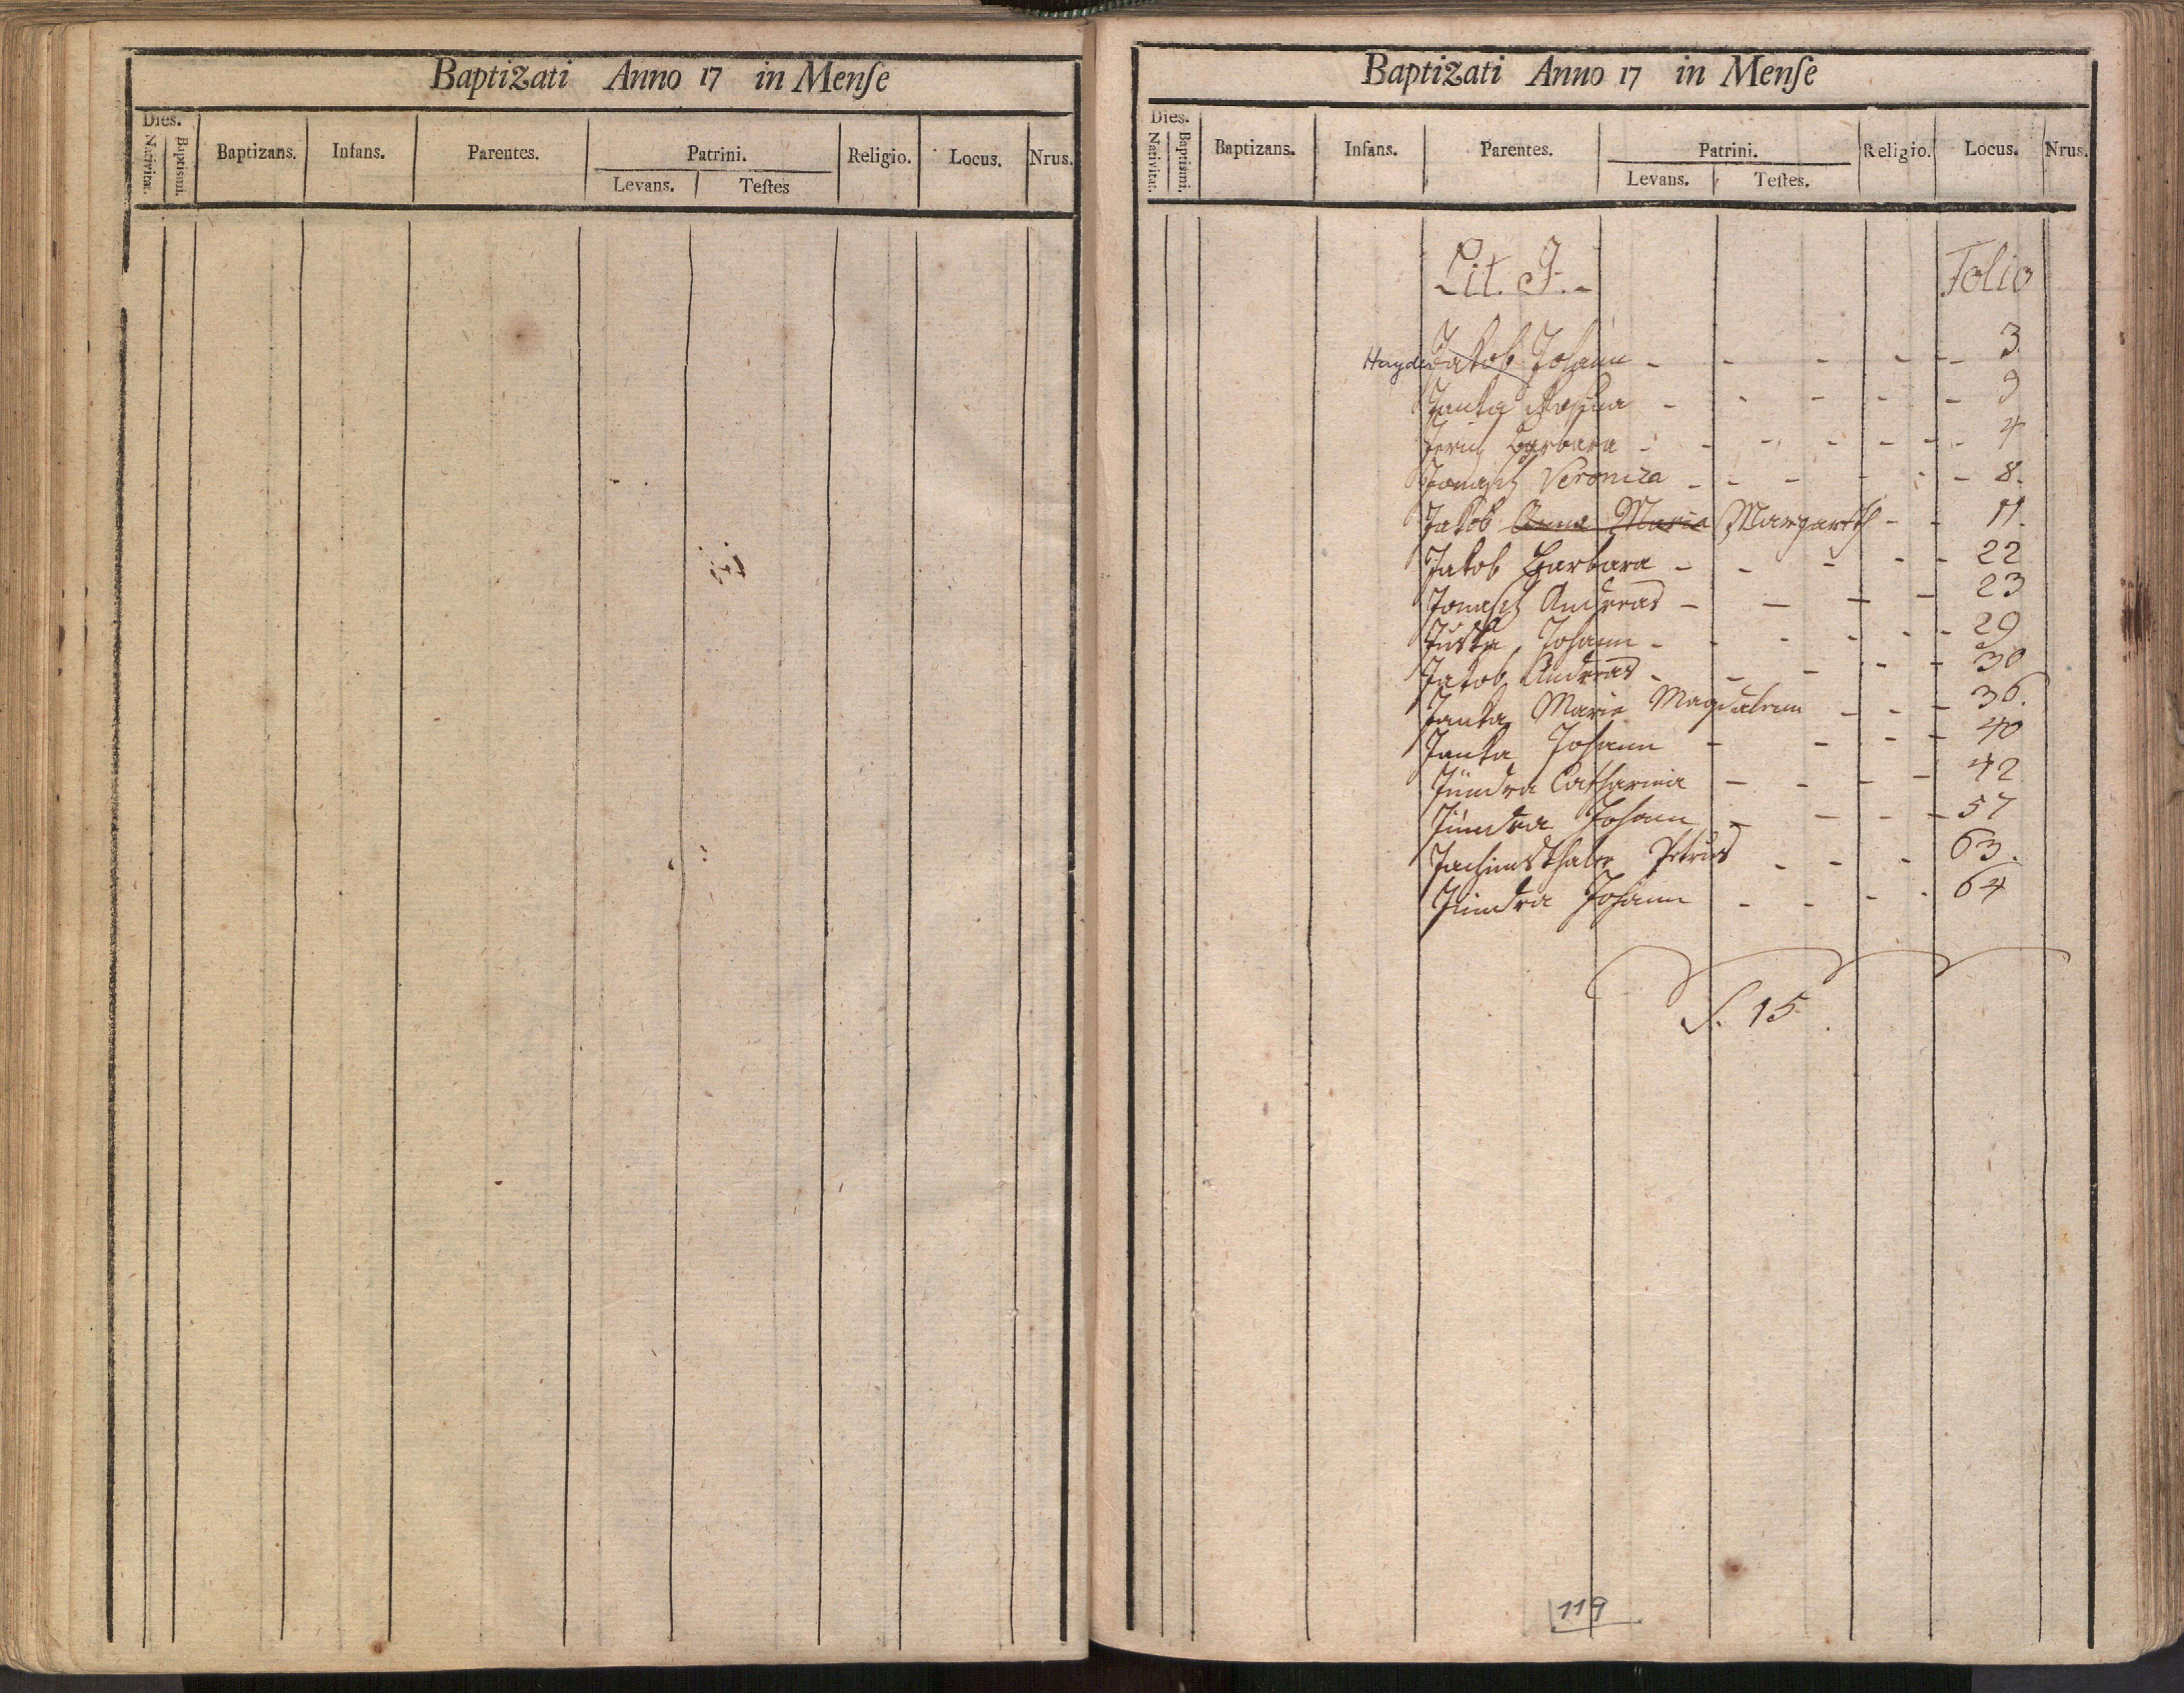 Baptizati Anno 17 in Menſe
Dies.
Nativitat. Baptismi. Baptizans. Infans. Parentes. Patrini. Religio. Locus. Nrus.
Levans. Teſtes
Baptizati Anno 17 in Menſe
Dies.
Nativitat. Baptismi. Baptizans. Infans. Parentes. Patrini. Religio. Locus. Nrus.
Levans. Teſtes.
Lit. J. Folio
Hayder Jakob Johann - - - - - 3
Janka Rosina - - - - - 9
Barbara - - - - - - 4
Jonasch Veronica - - - - - 8.
Jakob Anna Maria Margareth - - 11.
Jakob Barbara - - - - - 22
Jonasch Andreas - - - - 23
Juska Johann - - - - - - 29
Jakob Andreas - - - - - 30
Janka Marie Magdalena - - - 36.
Janka Johann - - - - 40
Jündra Catharina - - - - 42
Jündra Johann - - - - 57
Jachimsthaler Petrus - - - 63.
Jündra Johann - - - - 64
S. 15.
119